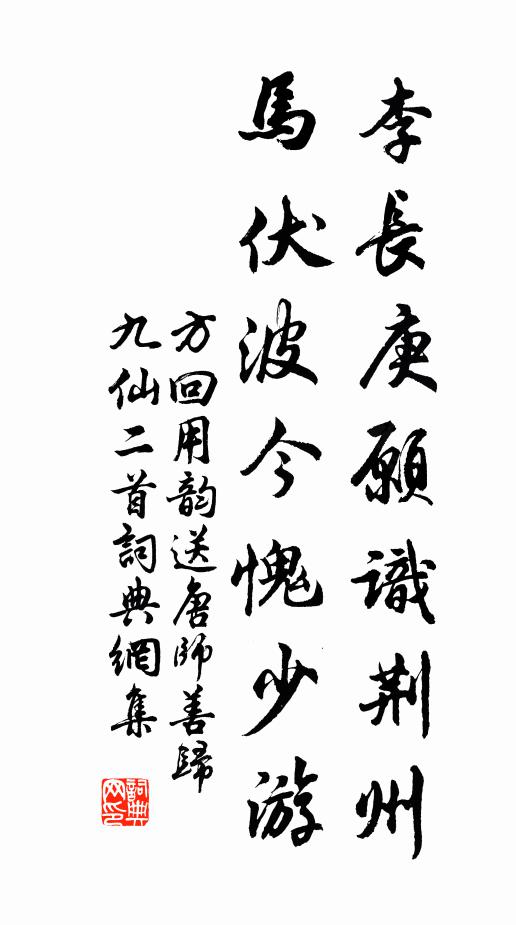 李長庚願識荆州
馬伏波今愧少游
方回用韵送唐師善歸
九仙二首詞典網集
詞典
网印